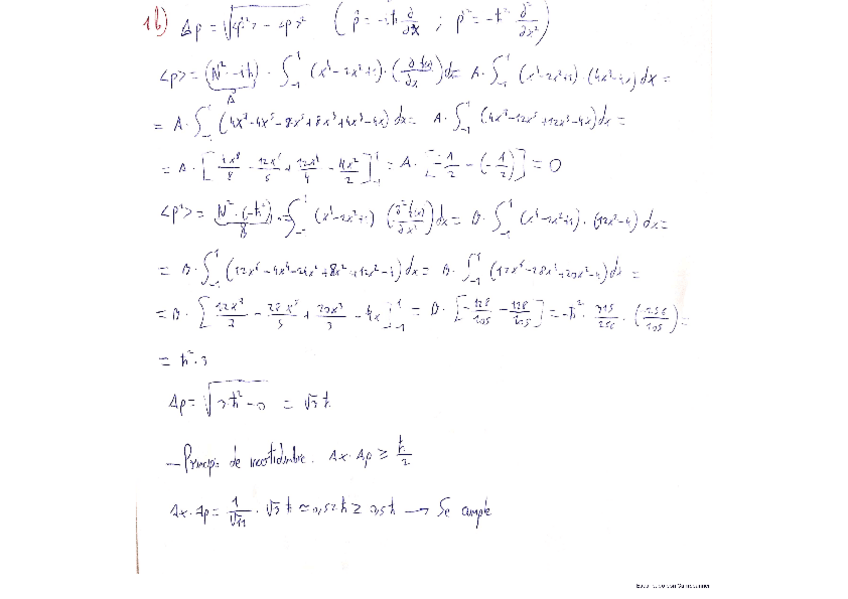 1b) Δp = √(<p²> - <p>²) ( p̂ = -iħ ∂/∂x ; p² = -ħ² ∂²/∂x² )
<p> = (N²·-iħ) · ∫₋₁¹ (x⁴-2x²+1)·(∂f(x)/∂x)dx = A·∫₋₁¹ (x⁴-2x²+1)·(4x³-4x)dx =
A
= A·∫₋₁¹ (4x⁷-4x⁵-8x⁵+8x³+4x³-4x)dx = A·∫₋₁¹ (4x⁷-12x⁵+12x³-4x)dx =
= A·[4x⁸/8 - 12x⁶/6 + 12x⁴/4 - 4x²/2]₋₁¹ = A·[-1/2 - (-1/2)] = 0
<p²> = N²·(-ħ²) · ∫₋₁¹ (x⁴-2x²+1) (∂²f(x)/∂x²)dx = B·∫₋₁¹ (x⁴-2x²+1)·(12x²-4)dx =
B
= B·∫₋₁¹ (12x⁶-4x⁴-24x⁴+8x²+12x²-4)dx = B·∫₋₁¹ (12x⁶-28x⁴+20x²-4)dx =
= B·[12x⁷/7 - 28x⁵/5 + 20x³/3 - 4x]₋₁¹ = B·[-128/105 - 128/105] = -ħ²· 315/256 ·(256/105) =
= ħ²·3
Δp = √(3ħ²-0) = √3 ħ
— Principio de incertidumbre. Δx·Δp ≥ ħ/2
Δx·Δp = 1/√11 · √3 ħ ≃ 0,52ħ ≥ 0,5ħ → Se cumple